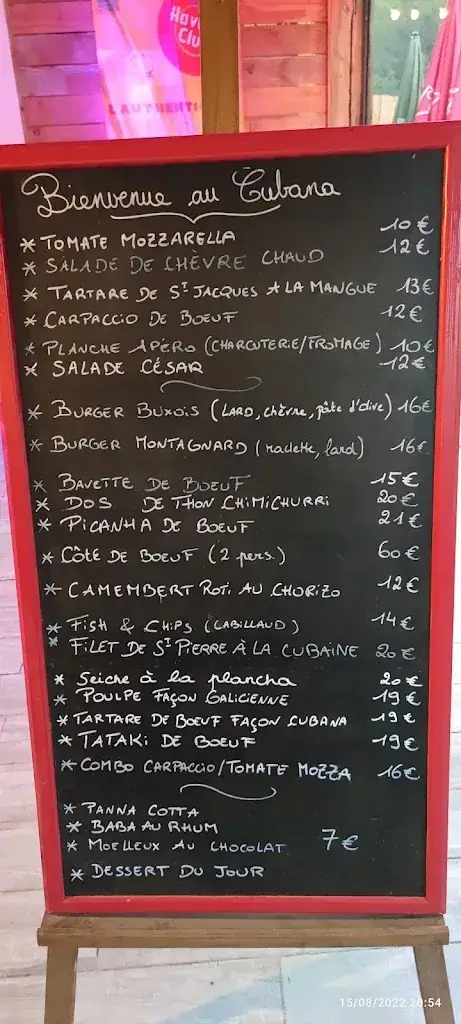 Hav
Clu
L'AUTHENTI
Bienvenue au Cubana
* TOMATE MOZZARELLA 10€
* SALADE DE CHÈVRE CHAUD 12€
* TARTARE DE ST JACQUES A LA MANGUE 13€
* CARPACCIO DE BOEUF 12€
* PLANCHE APÉRO (CHARCUTERIE/FROMAGE) 10€
* SALADE CÉSAR 12€
* BURGER BUXOIS (LARD, chèvre, pâte d'olive) 16€
* BURGER MONTAGNARD (raclette, lard) 16€
* BAVETTE DE BOEUF 15€
* DOS DE THON CHIMICHURRI 20€
* PICANHA DE BOEUF 21€
* CÔTE DE BOEUF (2 pers.) 60€
* CAMEMBERT ROTI AU CHORIZO 12€
* FISH & CHIPS (CABILLAUD) 14€
* FILET DE ST PIERRE À LA CUBAINE 20€
* Seiche à la plancha 20€
* POULPE FAÇON GALICIENNE 19€
* TARTARE DE BOEUF FAÇON CUBANA 19€
* TATAKI DE BOEUF 19€
* COMBO CARPACCIO/TOMATE MOZZA 16€
* PANNA COTTA
* BABA AU RHUM
* MOELLEUX AU CHOCOLAT 7€
* DESSERT DU JOUR
15/08/2022 20:54